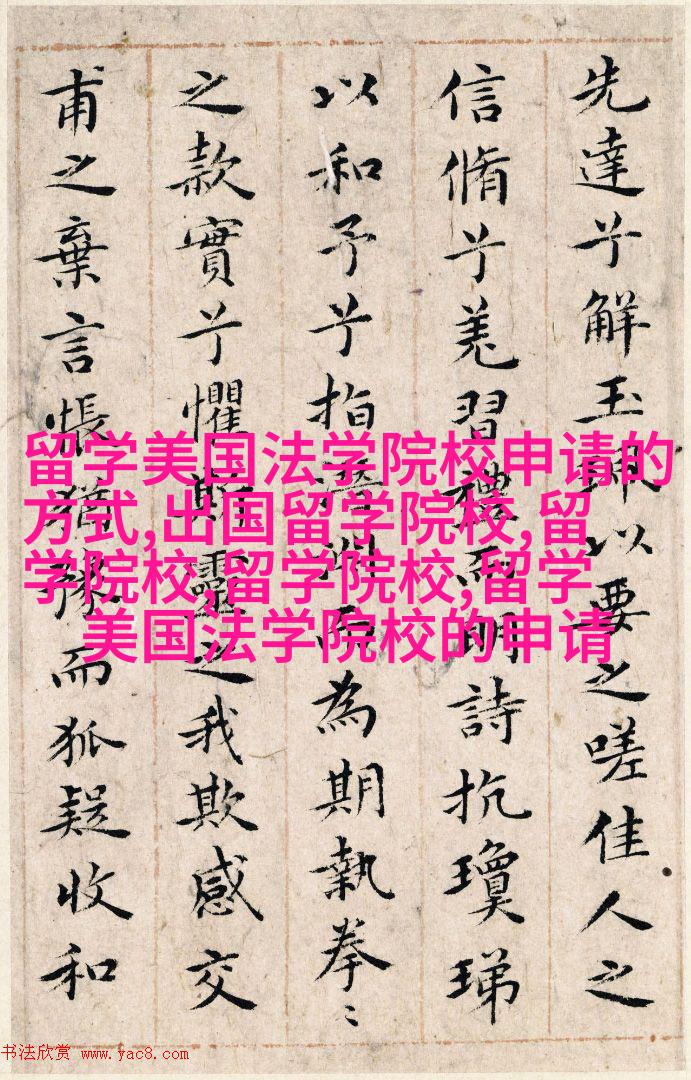 先達兮解玉珮以要之嗟佳人之
信脩兮羌習禮而明詩抗瓊珶
以和予兮指潛淵而為期執拳〻
之款實兮懼斯靈之我欺感交
甫之棄言悵猶豫而狐疑收和
留学美国法学院校申请的
方式,出国留学院校,留
学院校,留学院校,留学
美国法学院校的申请
书法欣赏 www.yac8.com